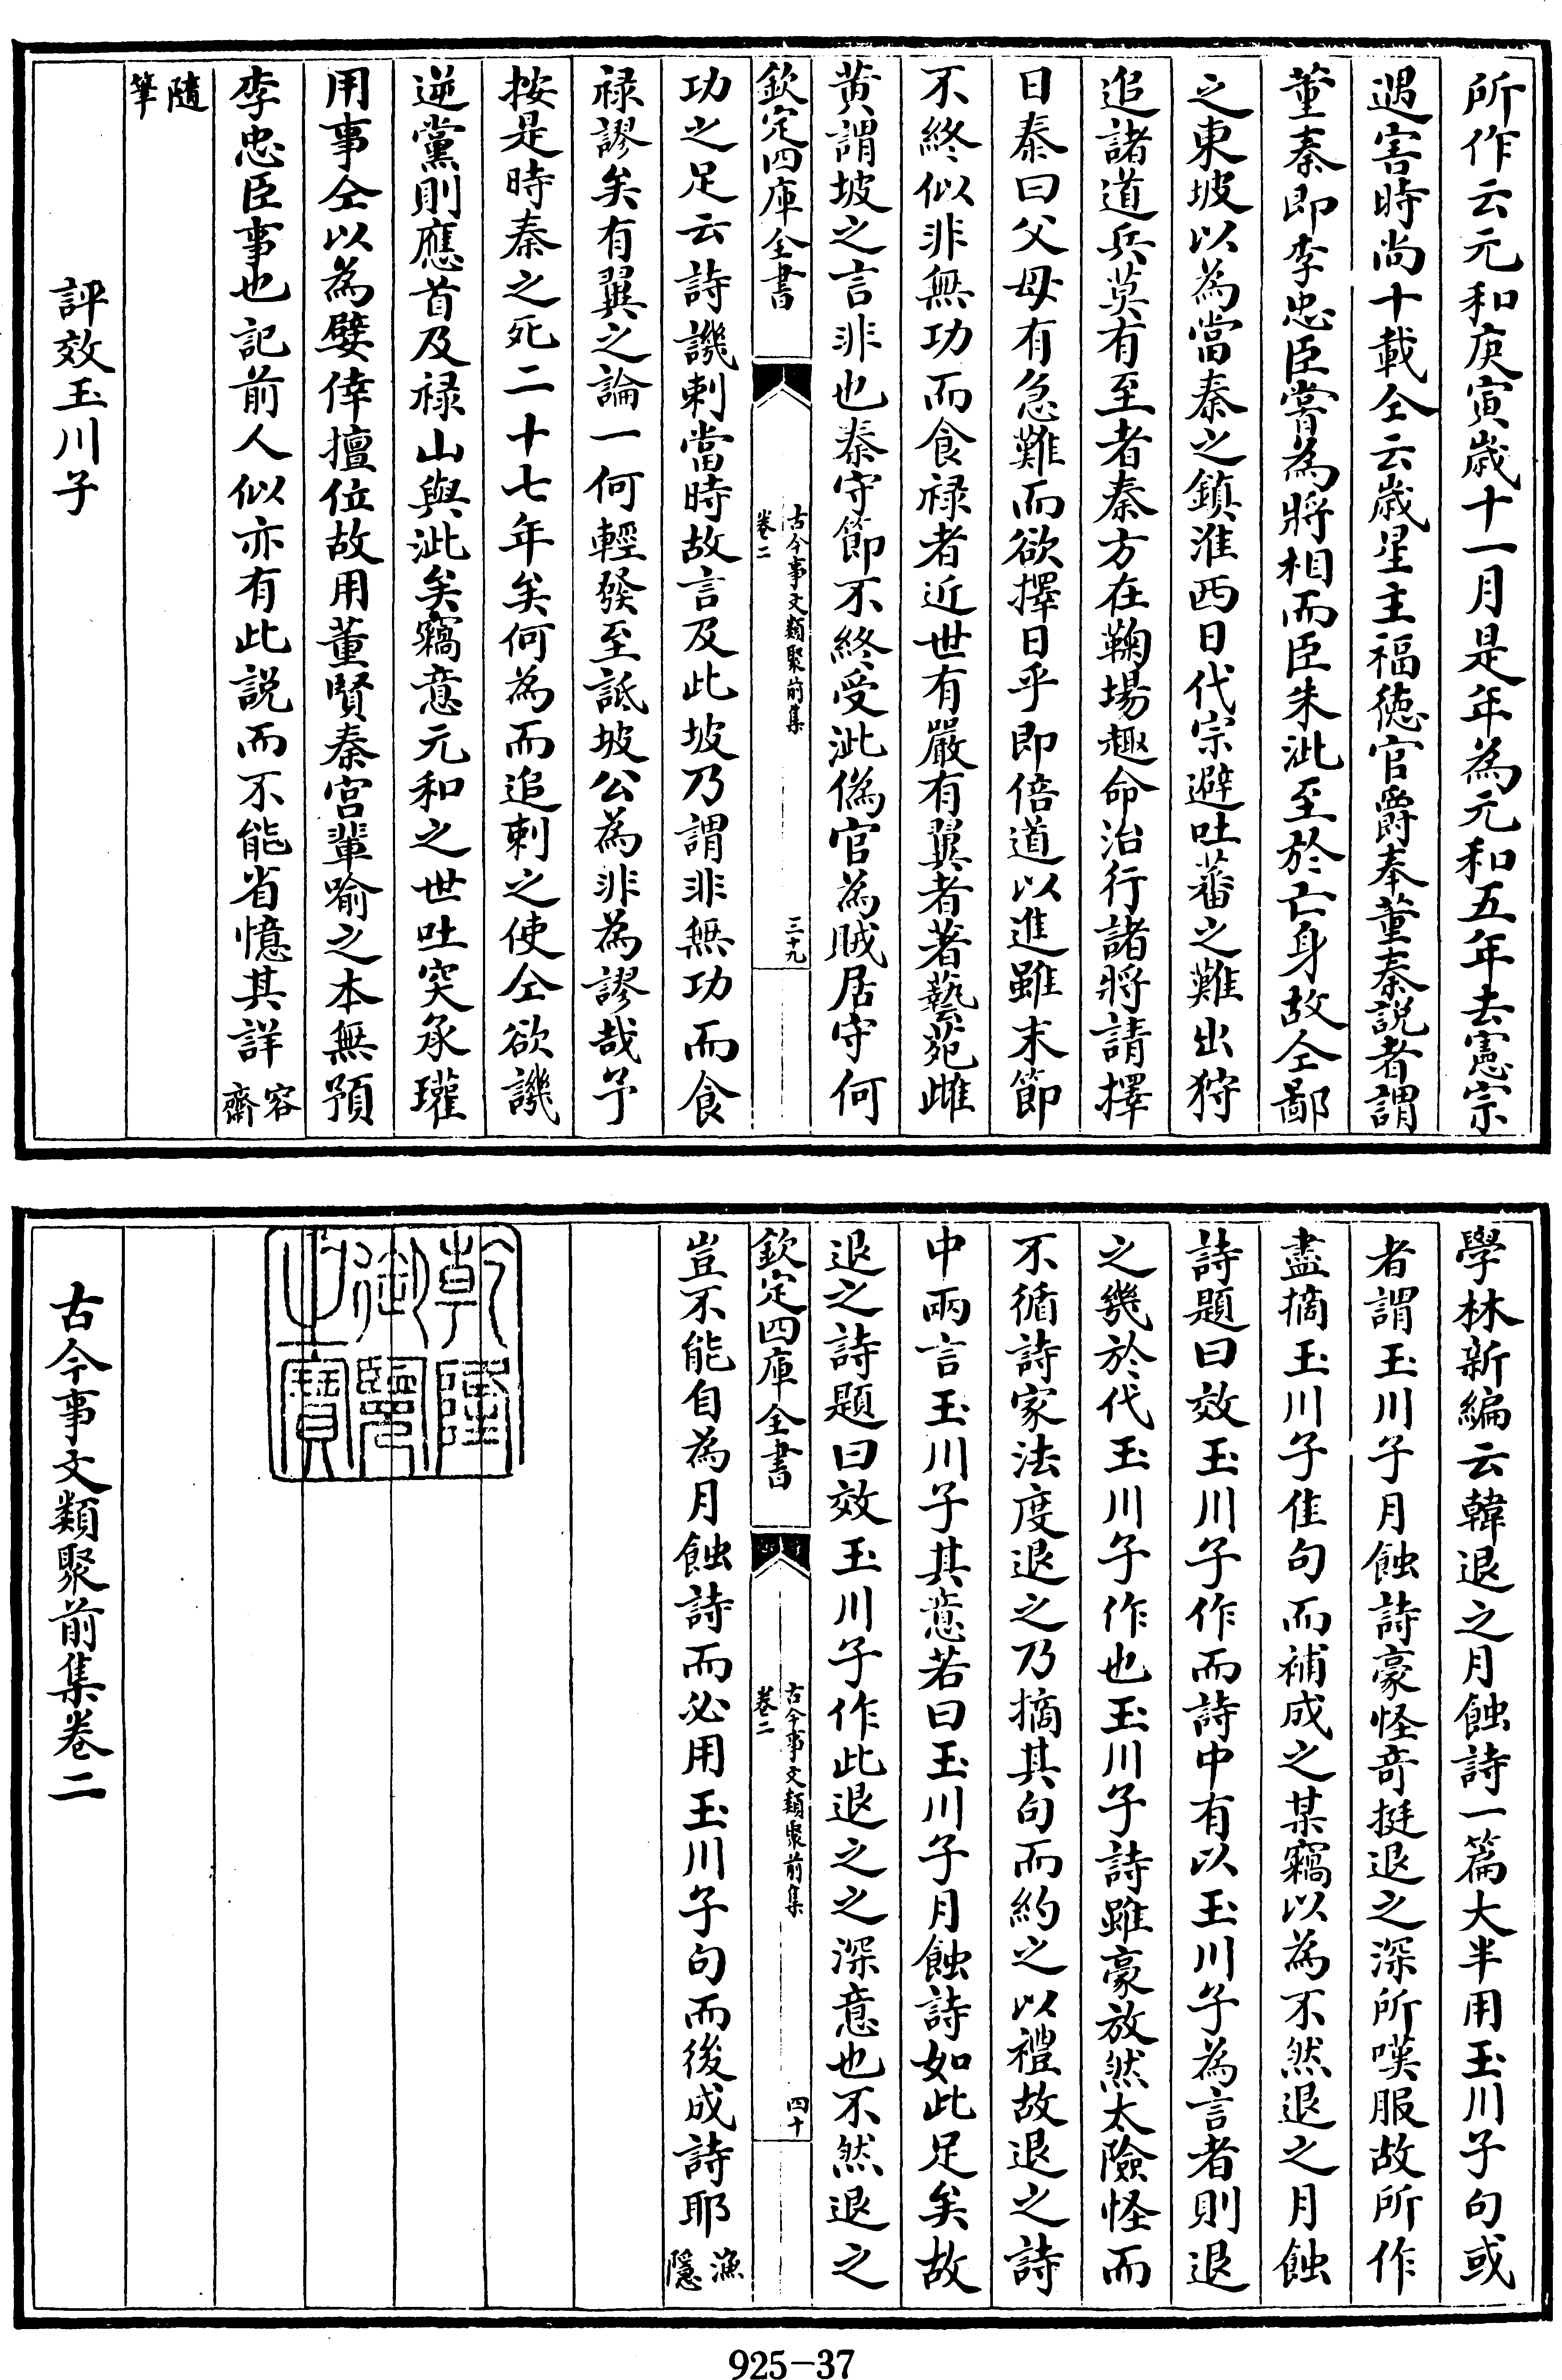 所作云元和庚寅歲十一月是年為元和五年去憲宗
遇害時尚十載仝云歲星主福德官爵奉董秦説者謂
董秦即李忠臣嘗為將相而臣朱泚至於亡身故仝鄙
之東坡以為當秦之鎮淮西日代宗避吐蕃之難出狩
追諸道兵莫有至者秦方在鞠場趣命治行諸將請擇
日秦曰父母有急難而欲擇日乎即倍道以進雖末節
不終似非無功而食禄者近世有嚴有翼者著藝苑雌
黄謂坡之言非也秦守節不終受泚偽官為賊居守何
欽定四庫全書
古今事文類聚前集
卷二
三十九
功之足云詩譏刺當時故言及此坡乃謂非無功而食
禄謬矣有翼之論一何輕發至詆坡公為非為謬哉予
按是時秦之死二十七年矣何為而追刺之使仝欲譏
逆黨則應首及禄山與泚矣竊意元和之世吐突承璀
用事仝以為嬖倖擅位故用董賢秦宫輩喻之本無預
李忠臣事也記前人似亦有此説而不能省憶其詳容齋
隨筆
評效玉川子
學林新編云韓退之月蝕詩一篇大半用玉川子句或
者謂玉川子月蝕詩豪怪奇挺退之深所嘆服故所作
盡摘玉川子佳句而補成之某竊以為不然退之月蝕
詩題曰效玉川子作而詩中有以玉川子為言者則退
之幾於代玉川子作也玉川子詩雖豪放然太險怪而
不循詩家法度退之乃摘其句而約之以禮故退之詩
中兩言玉川子其意若曰玉川子月蝕詩如此足矣故
退之詩題曰效玉川子作此退之之深意也不然退之
欽定四庫全書
古今事文類聚前集
卷二
四十
豈不能自為月蝕詩而必用玉川子句而後成詩耶漁隱
乾隆御覽之寶
古今事文類聚前集卷二
925-37